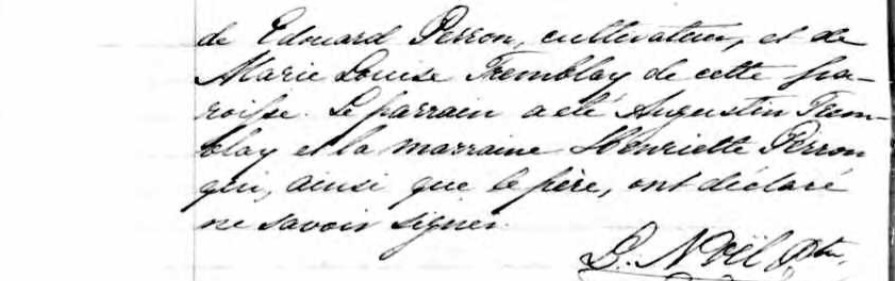 de Edouard Perron, cultivateur, et de
Marie Louise Tremblay de cette pa-
roisse. Le parrain a été Augustin Trem-
blay et la marraine Henriette Perron
qui, ainsi que le père, ont déclaré
ne savoir signer.
L. Noël Ptre,